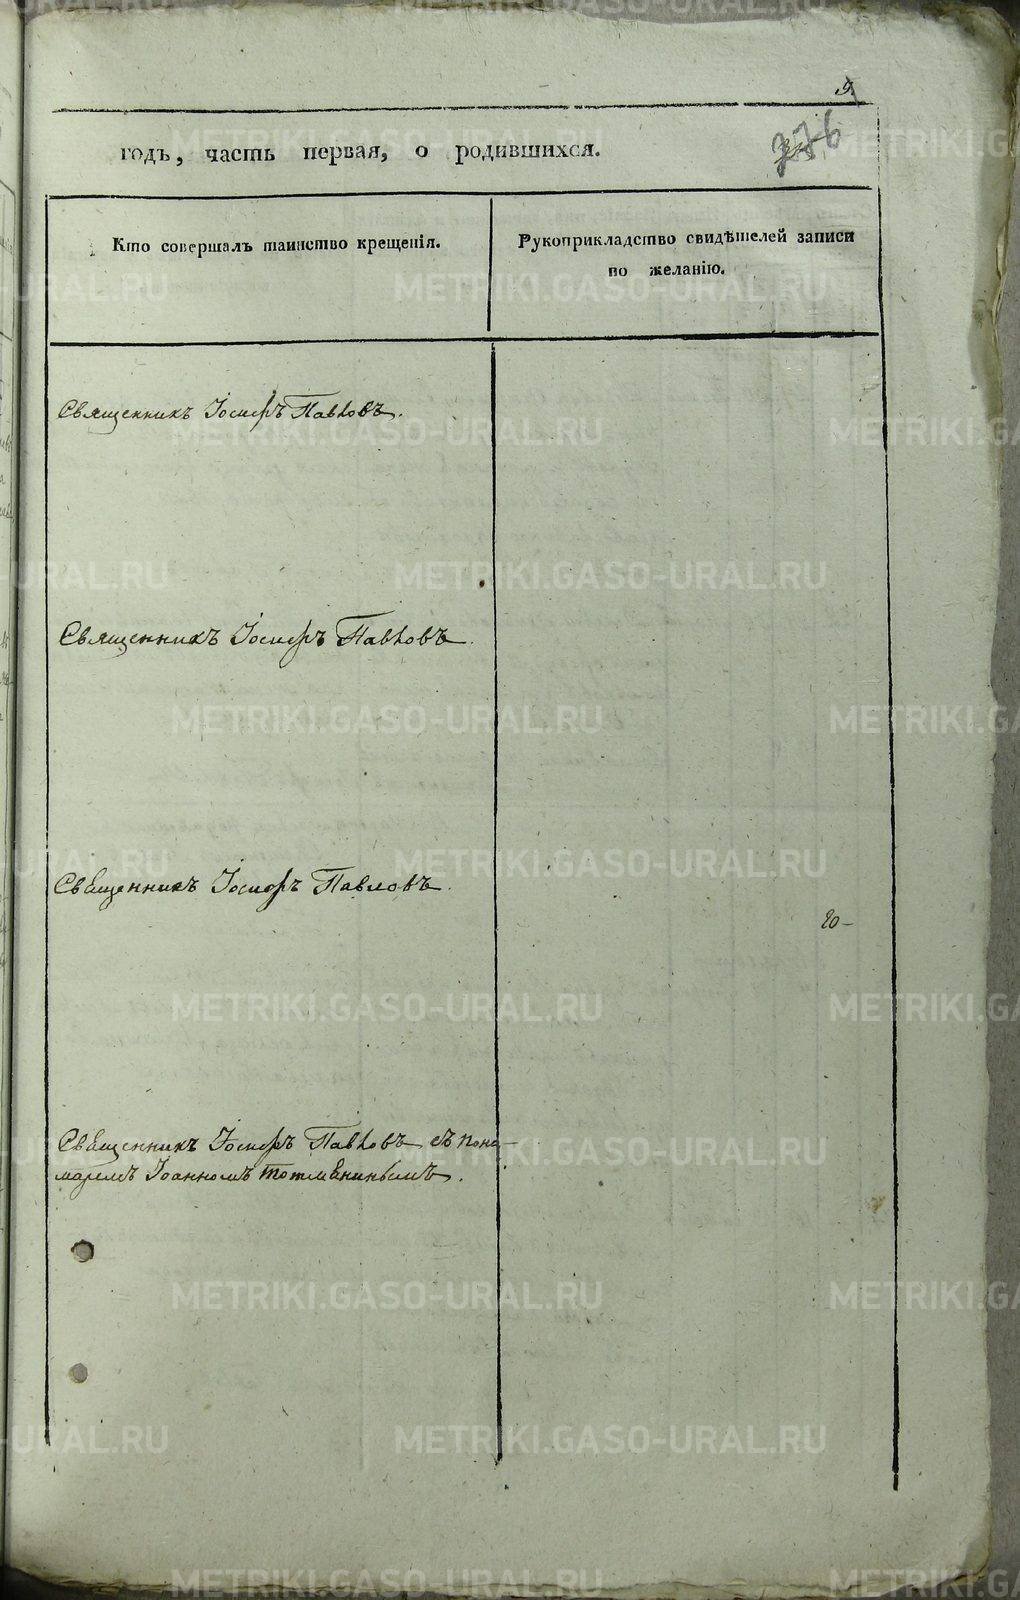 9.
376
годъ, часть первая, о родившихся.
Кто совершалъ таинство крещенія.
Рукоприкладство свидѣтелей записи
по желанію.
Священникъ Іосифъ Павловъ.
Священникъ Іосифъ Павловъ.
Священникъ Іосифъ Павловъ.
20-
Священникъ Іосифъ Павловъ съ поно-
маремъ Іоанномъ Тотмѣнинымъ.
METRIKI.GASO-URAL.RU